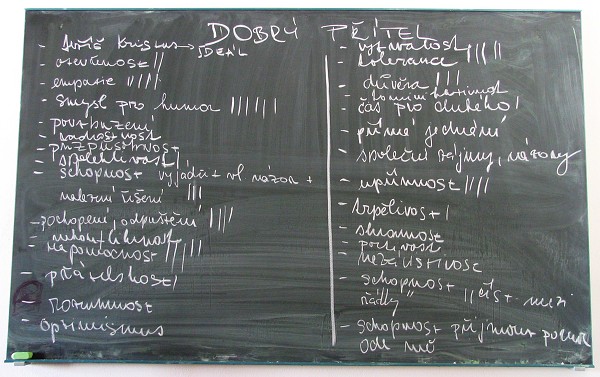 DOBRÝ PŘÍTEL
- Ježíš Kristus → IDEÁL
- otevřenost ||
- empatie ||||
- smysl pro humor ||||||
- povzbuzení
- radostnost
- přizpůsobivost
- spolehlivost |
- schopnost vyjádřit vl názor +
nalezení řešení |||
- pochopení, odpuštění ||||
- nápomocnost
- přátelskost |
- rozumnost
- optimismus
- vytrvalost
- tolerance |||||
- důvěra |||
- komunikativnost
- čas pro druhého |
- přímé jednání
- společné zájmy, názory
- upřímnost ||||
- trpělivost |
- skromnost
- poctivost
- nezávistivost
- schopnost "číst mezi
řádky"
- schopnost přijmout pomoc
ode mě